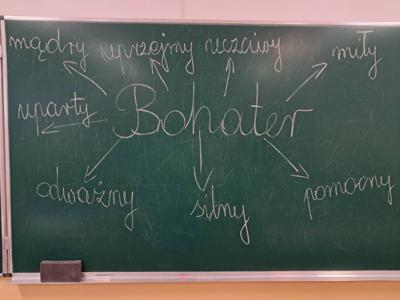 mądry uprzejmy uczciwy miły
uparty Bohater
odważny silny pomocny